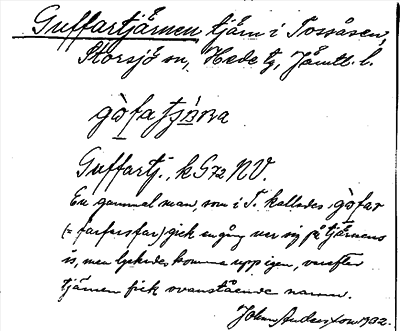 Guffartjärnen tjärn i Tossåsen,
Storsjö sn, Hede tg, Jämtl. l.
gò̱fa tjä̱́ṇa
Guffartj., k G72 NV.
En gammal man, som i T. kallades gò̱far
(= farfarsfar) gick en gång ner sig på tjärnens
is, men lyckades komma upp igen, varefter
tjärnen fick ovanstående namn.
Johan Andersson 1932.